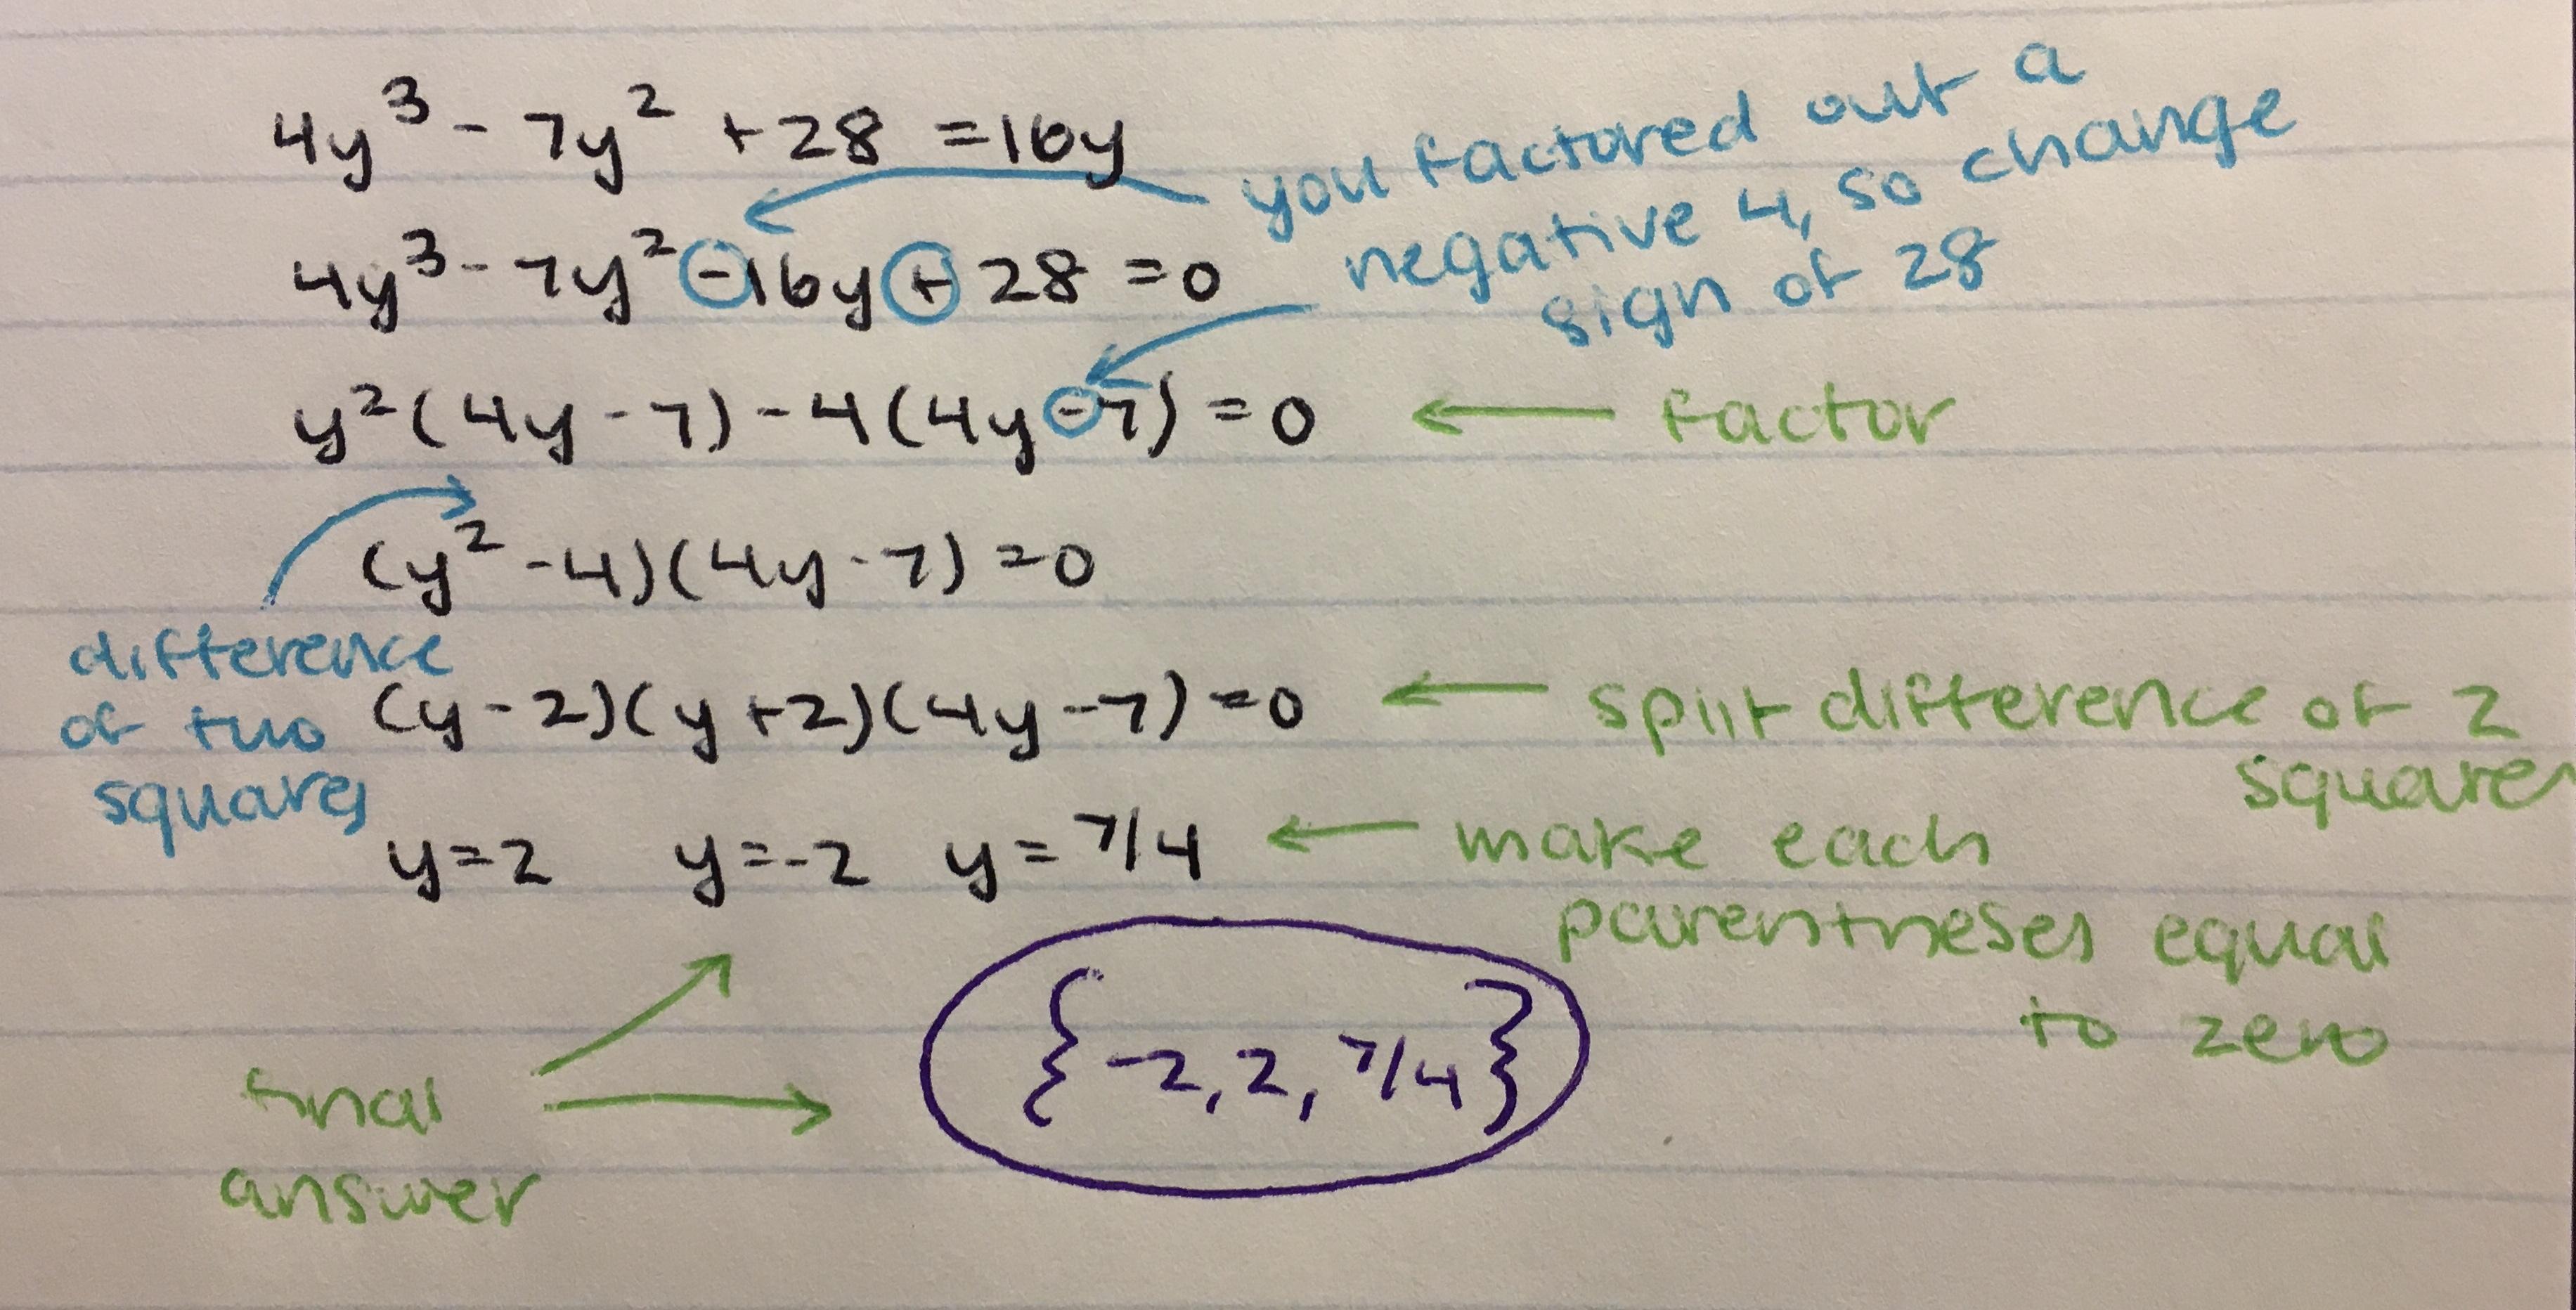 4y³ - 7y² + 28 = 16y
you factored out a
negative 4, so change
sign of 28
4y³ - 7y² - 16y + 28 = 0
y²(4y - 7) - 4(4y - 7) = 0
factor
(y² - 4)(4y - 7) = 0
difference
of two
squares
(y - 2)(y + 2)(4y - 7) = 0
split difference of 2
squares
y = 2 y = -2 y = 7/4
make each
parentheses equal
to zero
final
answer
{-2, 2, 7/4}